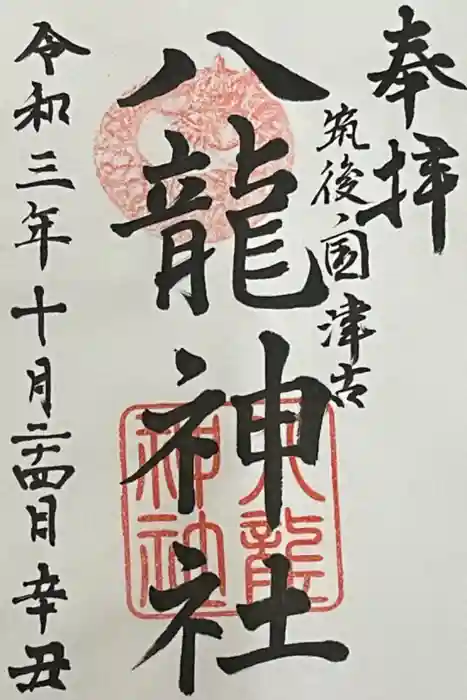 奉拝
筑後国津古
八龍神社
八龍
神社
令和三年十月二十四日 辛丑